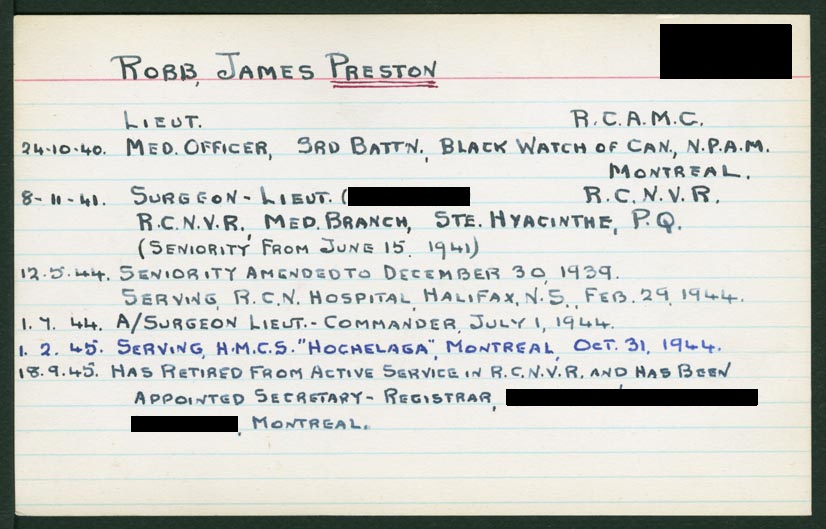 ROBB, JAMES PRESTON
LIEUT. R.C.A.M.C.
24-10-40. MED. OFFICER, 3RD BATT'N., BLACK WATCH OF CAN., N.P.A.M.
MONTREAL.
8-11-41. SURGEON-LIEUT. ( R.C.N.V.R.
R.C.N.V.R., MED. BRANCH, STE. HYACINTHE, P.Q.
(SENIORITY FROM JUNE 15, 1941)
12.5.44. SENIORITY AMENDED TO DECEMBER 30, 1939.
SERVING, R.C.N. HOSPITAL, HALIFAX, N.S., FEB. 29, 1944.
1. 7. 44. A/SURGEON LIEUT.-COMMANDER, JULY 1, 1944.
1. 2. 45. SERVING, H.M.C.S. "HOCHELAGA", MONTREAL, OCT. 31, 1944.
18.9.45. HAS RETIRED FROM ACTIVE SERVICE IN R.C.N.V.R. AND HAS BEEN
APPOINTED SECRETARY-REGISTRAR,
, MONTREAL.